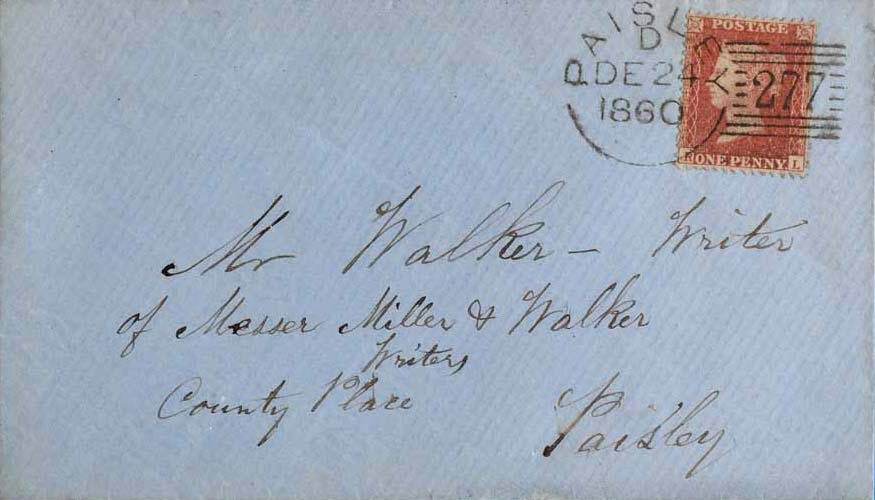 PAISLEY
D
DE 24
1860
277
POSTAGE
ONE PENNY
L
Mr Walker – Writer
of Messer Miller & Walker
Writers
County Place
Paisley